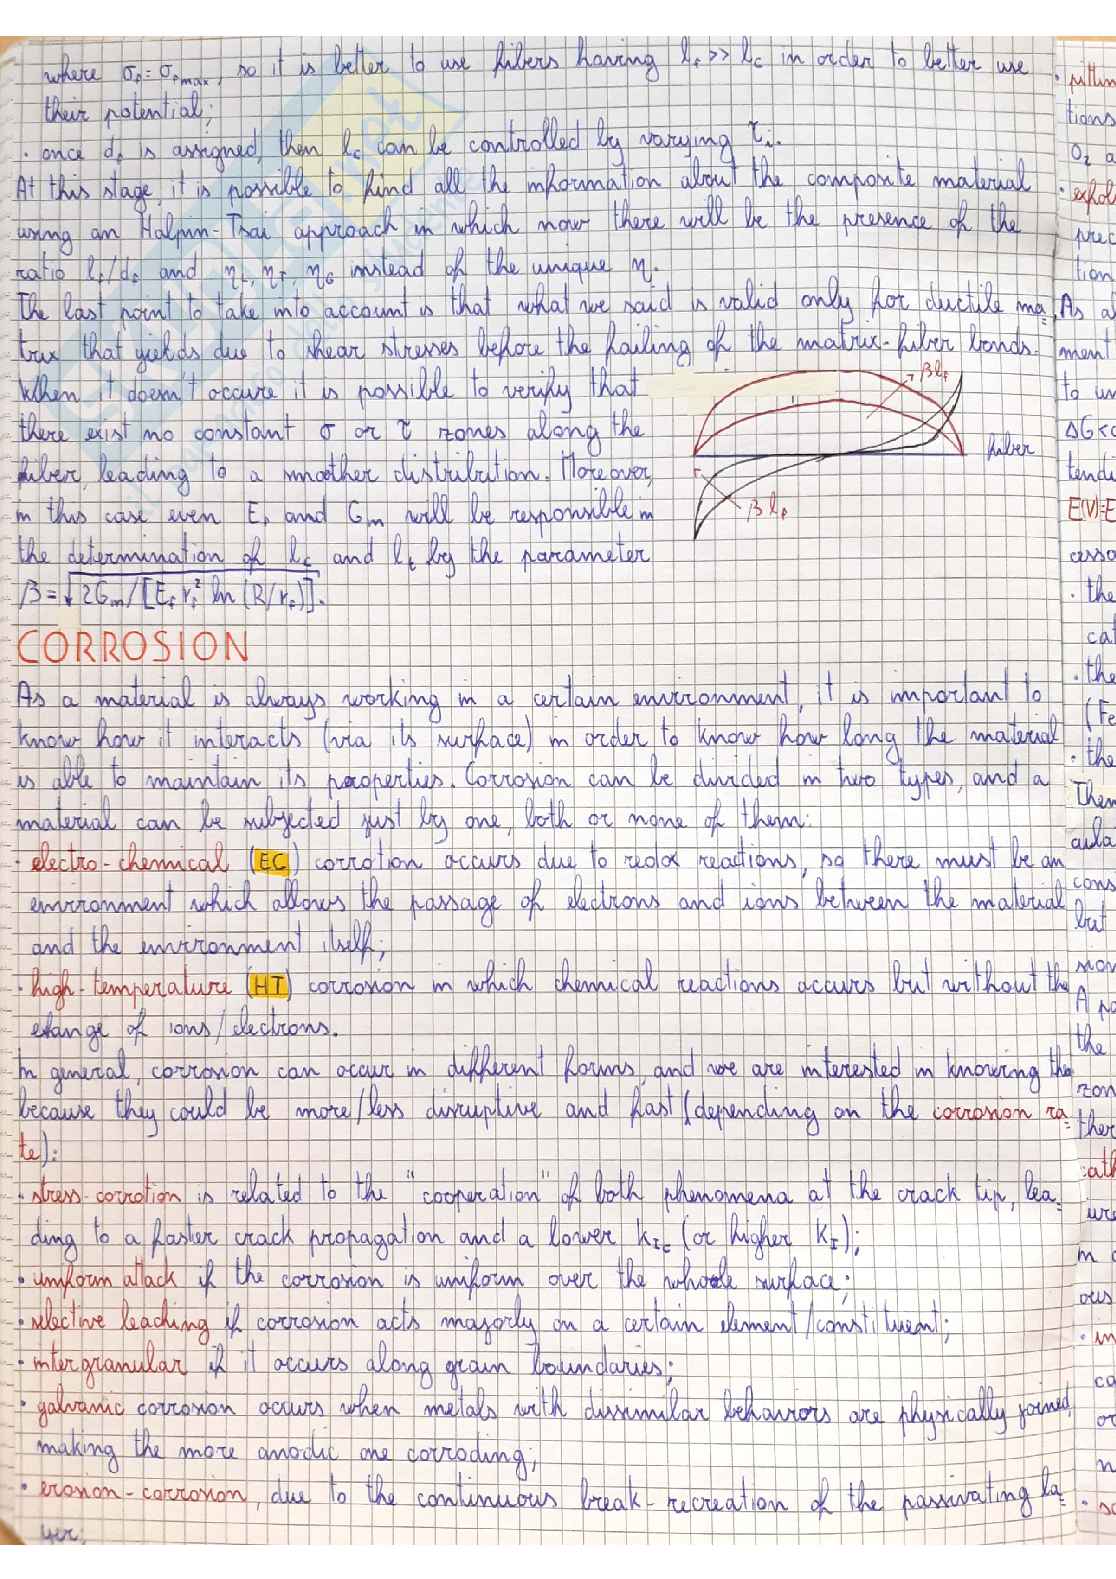 where σf = σf max, so it is better to use fibers having lf >> lc in order to better use
their potential;
· once df is assigned, then lc can be controlled by varying τi.
At this stage, it is possible to find all the information about the composite material
using an Halpin-Tsai approach in which now there will be the presence of the
ratio lf/df and ηL, ηT, ηG instead of the unique η.
The last point to take into account is that what we said is valid only for ductile ma=
trix that yields due to shear stresses before the failing of the matrix-fiber bonds.
When it doesn't occure it is possible to verify that
there exist no constant σ or τ zones along the
fiber, leading to a smoother distribution. Moreover,
in this case even Ef and Gm will be responsible in
the determination of lc and lt by the parameter
β = √2Gm/[Ef rf² ln(R/rf)].
βlf
fiber
βlf
CORROSION
As a material is always working in a certain environment, it is important to
know how it interacts (via its surface) in order to know how long the material
is able to maintain its properties. Corrosion can be divided in two types, and a
material can be subjected just by one, both or none of them:
· electro-chemical (EC) corrotion occurs due to redox reactions, so there must be an
environment which allows the passage of electrons and ions between the material
and the environment itself;
· high-temperature (HT) corrosion in which chemical reactions occurs but without the
exange of ions/electrons.
In general, corrosion can occur in different forms, and we are interested in knowing the
because they could be more/less disruptive and fast (depending on the corrosion ra=
te):
· stress-corrotion is related to the "cooperation" of both phenomena at the crack tip, lea=
ding to a faster crack propagation and a lower KIc (or higher KI);
· uniform attack if the corrosion is uniform over the whole surface;
· selective leaching if corrosion acts majorly on a certain element/constituent;
· intergranular if it occurs along grain boundaries;
· galvanic corrosion occurs when metals with dissimilar behaviors are physically joined,
making the more anodic one corroding;
· erosion-corrosion, due to the continuous break-recreation of the passivating la=
yer;